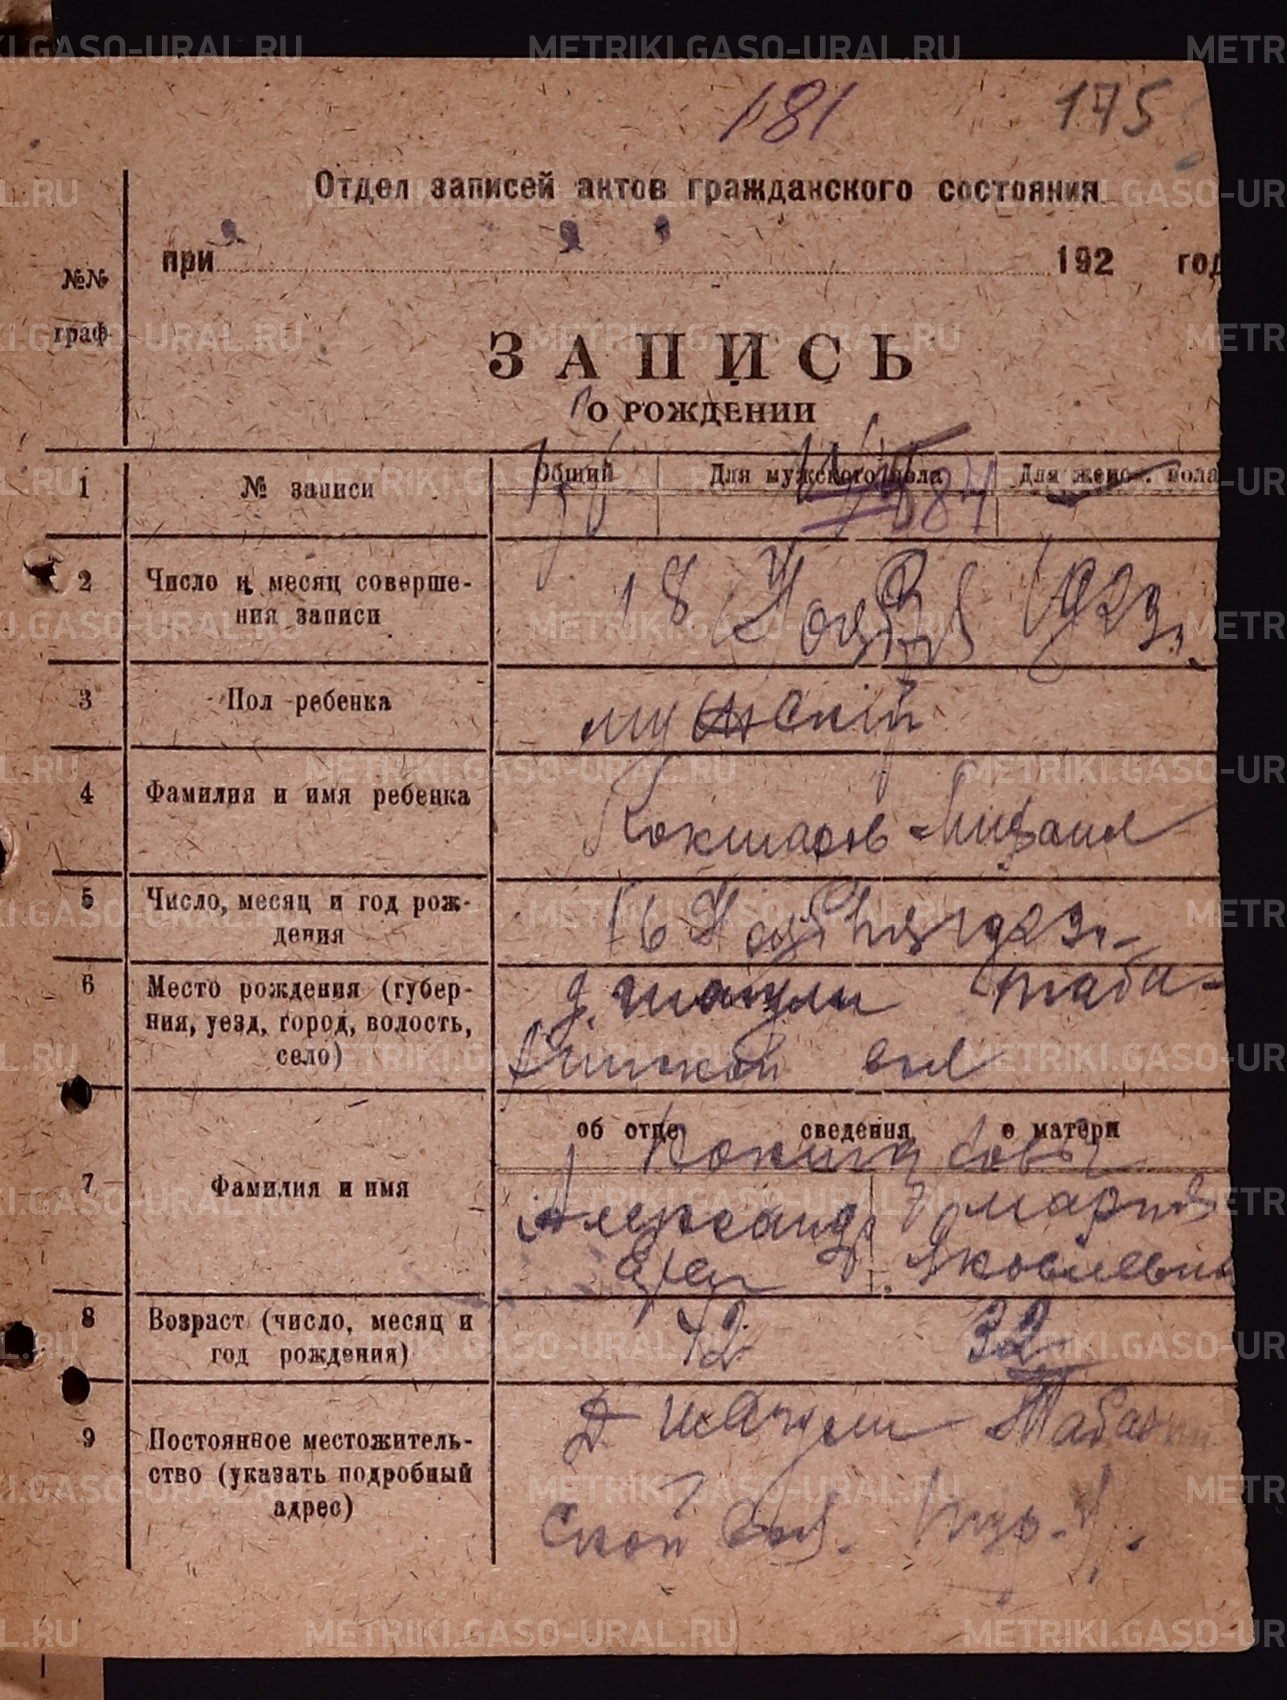 181 175
Отдел записей актов гражданского состояния
при 192 год
№№
граф
ЗАПИСЬ
О РОЖДЕНИИ
1 № записи Общий Для мужского пола Для женск. пола
84
2 Число и месяц соверше-
ния записи
18 Ноября 1923г.
3 Пол ребенка мужскій
4 Фамилия и имя ребенка Кокшаров Михаил
5 Число, месяц и год рож-
дения
16 Ноября 1923г.
6 Место рождения (губер-
ния, уезд, город, волость,
село)
д. Таба-
ринской вол
об отце сведения о матери
Кокшаровы
7 Фамилия и имя
Александр Мария
Яковлевна
8 Возраст (число, месяц и
год рождения)
42 32
9 Постоянное местожитель-
ство (указать подробный
адрес)
Д.
ской вол.
METRIKI.GASO-URAL.RU